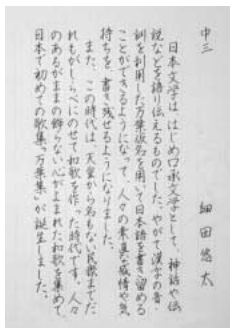 中三　細田悠太
日本文学は、はじめ口承文学として、神話や伝
説などを語り伝えるものでした。やがて漢字の音・
訓を利用した万葉仮名を用いて日本語を書き留める
ことができるようになって、人々の素直な感情や気
持ちを書き残せるようになりました。
また、この時代は、天皇から名もない民衆までだ
れもがしらべにのせて和歌を作った時代です。人々
のあるがままの飾らない心がよまれた和歌を集めて、
日本で初めての歌集「万葉集」が誕生しました。